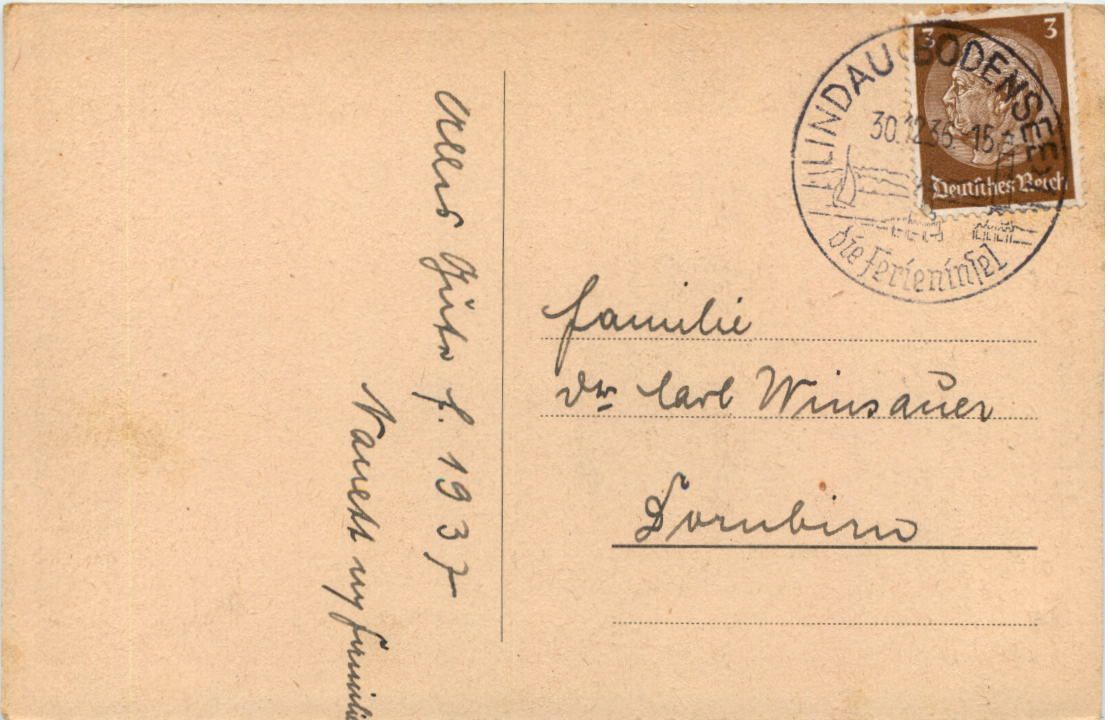 LINDAU-BODENSEE
30.12.36.-15
die Ferieninsel
3 3
Deutsches Reich
Alles Gute f. 1937
Familie
Dr. Carl Winsauer
Dornbirn